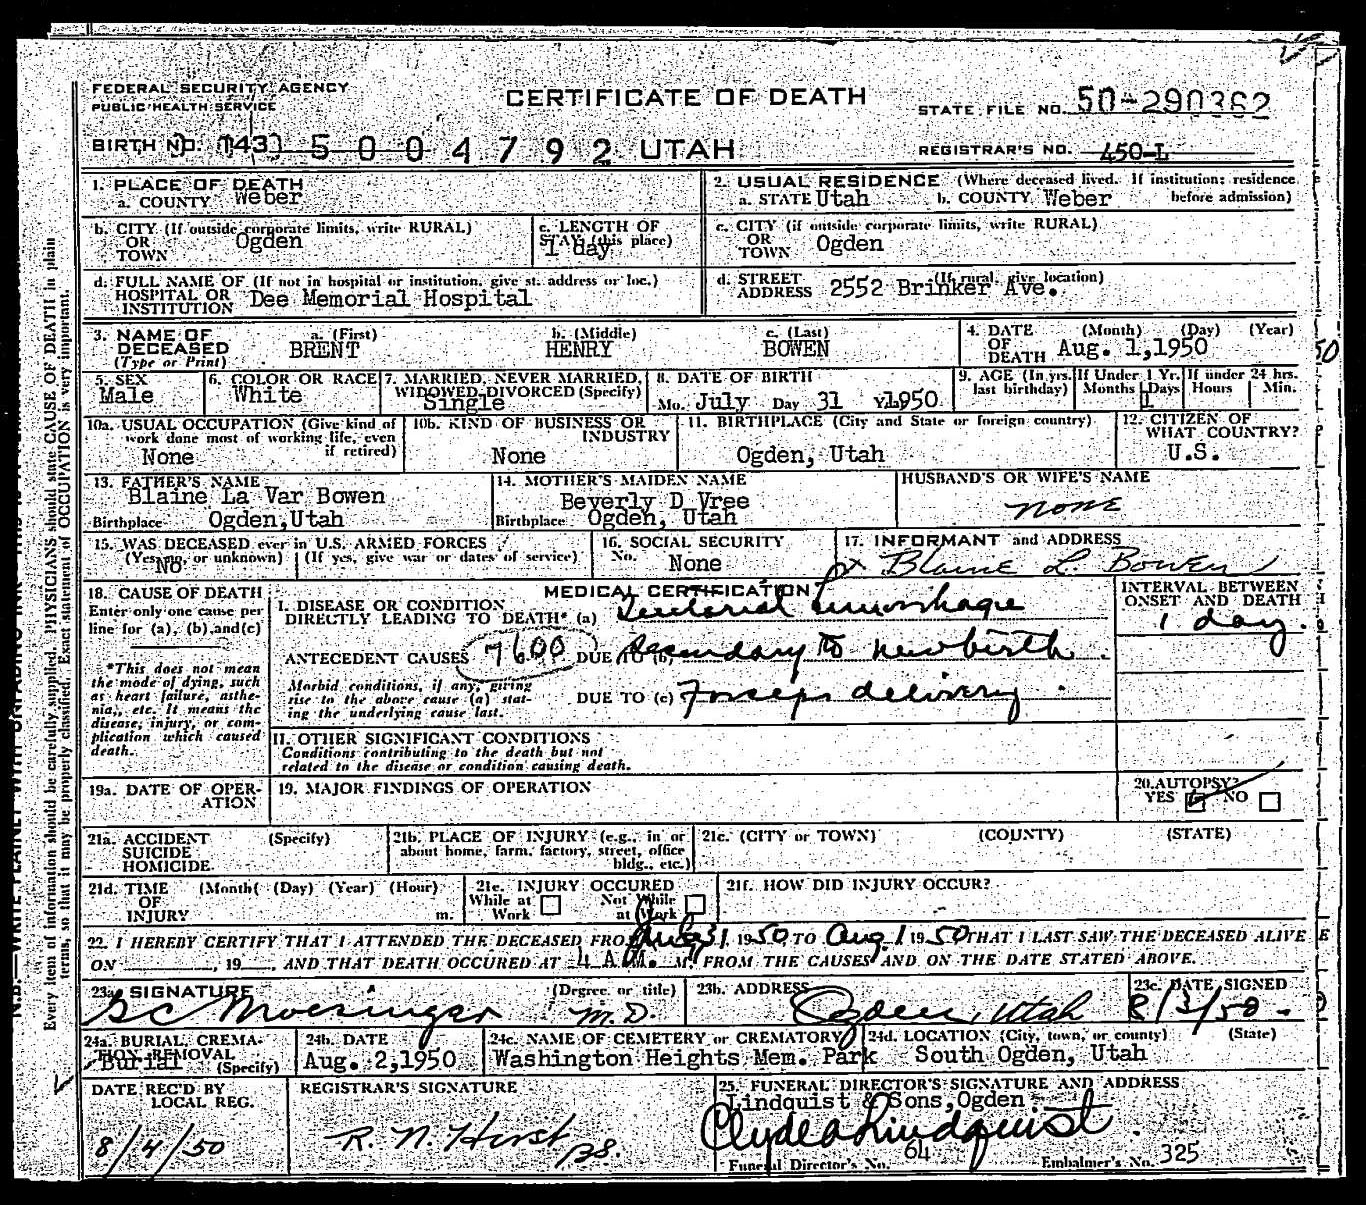 FEDERAL SECURITY AGENCY
PUBLIC HEALTH SERVICE
CERTIFICATE OF DEATH
STATE FILE NO. 50-290362
BIRTH NO. 143 5004792 UTAH
REGISTRAR'S NO. 450-L
1. PLACE OF DEATH
a. COUNTY Weber
2. USUAL RESIDENCE (Where deceased lived. If institution: residence before admission)
a. STATE Utah b. COUNTY Weber
b. CITY (If outside corporate limits, write RURAL)
OR TOWN Ogden
c. LENGTH OF STAY (this place)
1 day
c. CITY (if outside corporate limits, write RURAL)
OR TOWN Ogden
d. FULL NAME OF (If not in hospital or institution, give st. address or loc.)
HOSPITAL OR INSTITUTION Dee Memorial Hospital
d. STREET ADDRESS (If rural, give location)
2552 Brinker Ave.
3. NAME OF DECEASED (Type or Print)
a. (First) BRENT
b. (Middle) HENRY
c. (Last) BOWEN
4. DATE OF DEATH (Month) (Day) (Year)
Aug. 1,1950
50
5. SEX
Male
6. COLOR OR RACE
White
7. MARRIED, NEVER MARRIED, WIDOWED, DIVORCED (Specify)
Single
8. DATE OF BIRTH
Mo. July Day 31 Y. 1950
9. AGE (In yrs. last birthday)
If Under 1 Yr. Months Days
1
If under 24 hrs. Hours Min.
10a. USUAL OCCUPATION (Give kind of work done most of working life, even if retired)
None
10b. KIND OF BUSINESS OR INDUSTRY
None
11. BIRTHPLACE (City and State or foreign country)
Ogden, Utah
12. CITIZEN OF WHAT COUNTRY?
U.S.
13. FATHER'S NAME
Blaine La Var Bowen
Birthplace Ogden,Utah
14. MOTHER'S MAIDEN NAME
Beverly D Vree
Birthplace Ogden, Utah
HUSBAND'S OR WIFE'S NAME
none
15. WAS DECEASED ever in U.S. ARMED FORCES
(Yes, no, or unknown) (If yes, give war or dates of service)
No
16. SOCIAL SECURITY No.
None
17. INFORMANT and ADDRESS
x Blaine L. Bowen
18. CAUSE OF DEATH
Enter only one cause per line for (a), (b), and (c)
*This does not mean the mode of dying, such as heart failure, asthenia, etc. It means the disease, injury, or complication which caused death.
MEDICAL CERTIFICATION
I. DISEASE OR CONDITION DIRECTLY LEADING TO DEATH* (a) hemorhage
ANTECEDENT CAUSES 7600 DUE TO (b) Secondary to newbirth
Morbid conditions, if any, giving rise to the above cause (a) stating the underlying cause last.
DUE TO (c) Forceps delivery.
INTERVAL BETWEEN ONSET AND DEATH
1 day.
II. OTHER SIGNIFICANT CONDITIONS
Conditions contributing to the death but not related to the disease or condition causing death.
19a. DATE OF OPERATION
19. MAJOR FINDINGS OF OPERATION
20. AUTOPSY?
YES NO
21a. ACCIDENT SUICIDE HOMICIDE (Specify)
21b. PLACE OF INJURY (e.g., in or about home, farm, factory, street, office bldg., etc.)
21c. (CITY or TOWN) (COUNTY) (STATE)
21d. TIME OF INJURY (Month) (Day) (Year) (Hour) m.
21e. INJURY OCCURED
While at Work Not While at Work
21f. HOW DID INJURY OCCUR?
22. I HEREBY CERTIFY THAT I ATTENDED THE DECEASED FROM July 31 1950 TO Aug. 1 1950 THAT I LAST SAW THE DECEASED ALIVE
ON , 19 , AND THAT DEATH OCCURED AT 4 A.M. M. FROM THE CAUSES AND ON THE DATE STATED ABOVE.
23a. SIGNATURE (Degree or title)
Moesinger M.D.
23b. ADDRESS
Ogden, Utah
23c. DATE SIGNED
8/3/50
24a. BURIAL, CREMATION, REMOVAL (Specify)
Burial
24b. DATE
Aug. 2,1950
24c. NAME OF CEMETERY or CREMATORY
Washington Heights Mem. Park
24d. LOCATION (City, town, or county) (State)
South Ogden, Utah
DATE REC'D BY LOCAL REG.
8/4/50
REGISTRAR'S SIGNATURE
R. N. Hirst
25. FUNERAL DIRECTOR'S SIGNATURE AND ADDRESS
Lindquist & Sons,Ogden
Clyde Lindquist
64 325
Funeral Director's No. Embalmer's No.
Every item of information should be carefully supplied. PHYSICIANS should state CAUSE OF DEATH in plain
terms, so that it may be properly classified. Exact statement of OCCUPATION is very important.